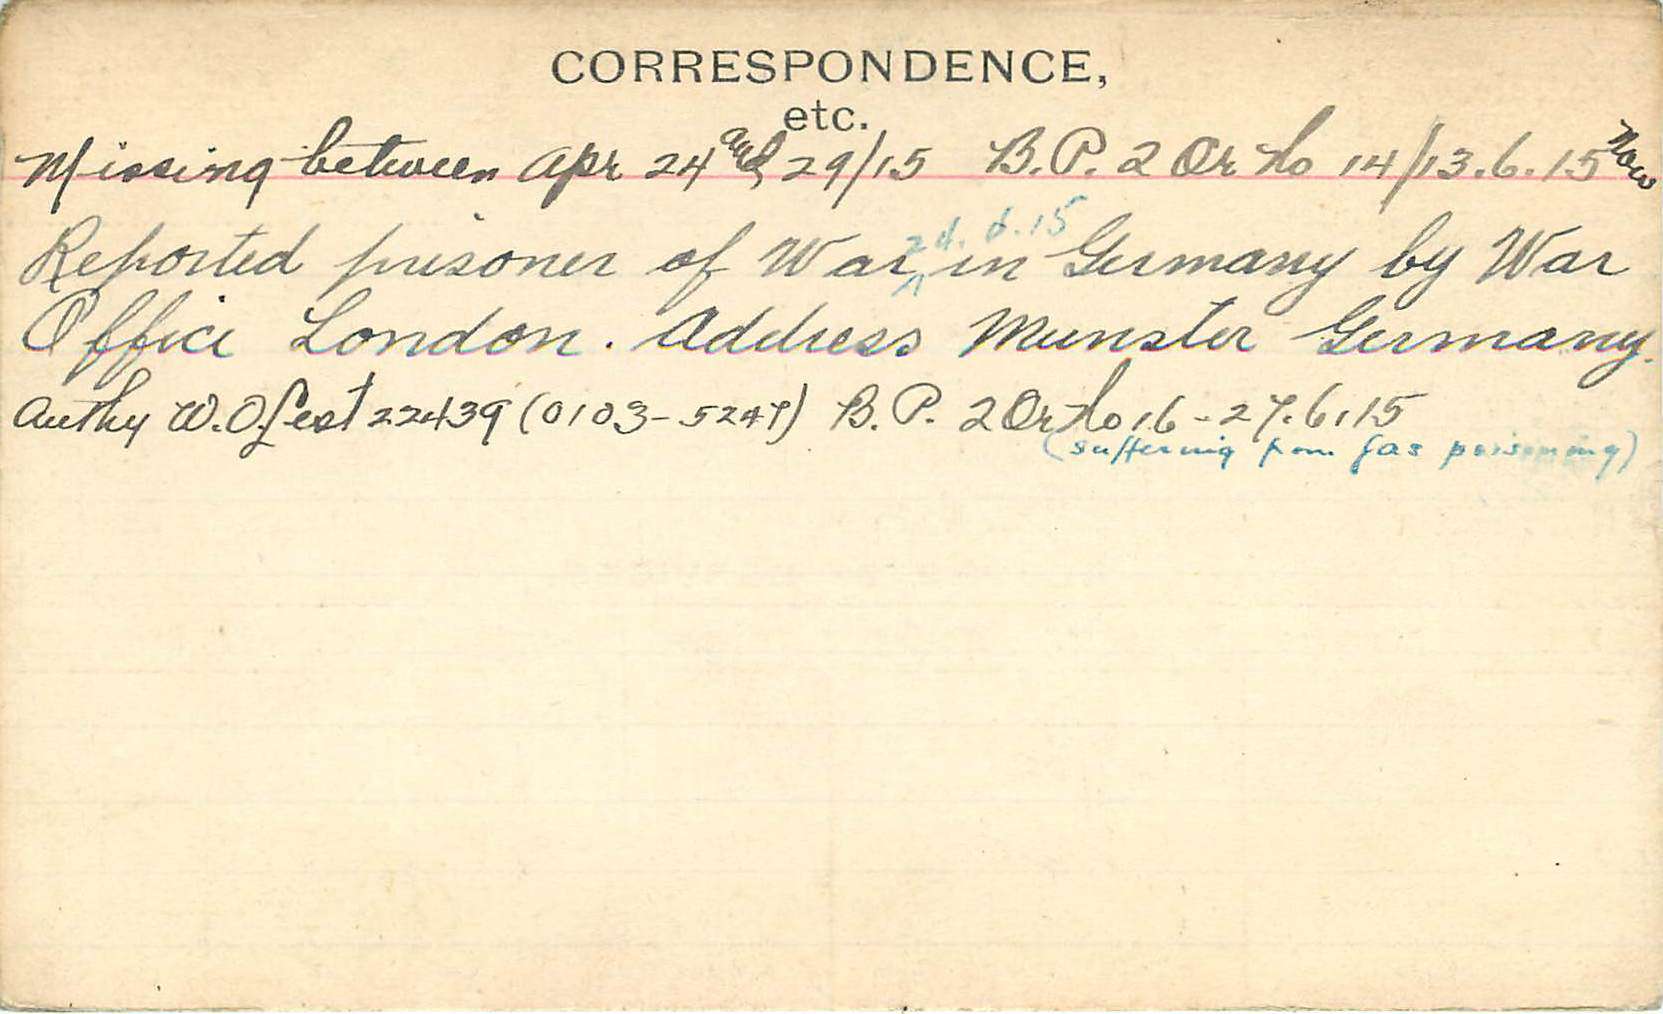 CORRESPONDENCE,
etc.
Missing between Apr 24 and 29/15 B.P. 2 Or No 14/13.6.15 Now
Reported prisoner of War 24.6.15 in Germany by War
Office London. Address Munster Germany.
Authy W.O. List 22439 (0103-5247) B.P. 2 Or No 16-27.6.15
(suffering from gas poisoning)